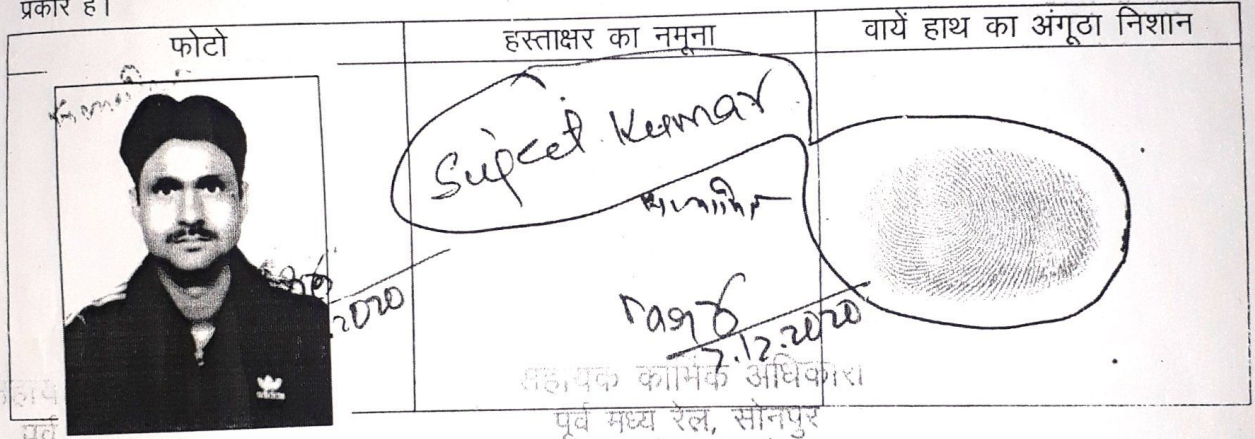 प्रकार है।
फोटो
हस्ताक्षर का नमूना
वायें हाथ का अंगूठा निशान
Sujeet Kumar
2020
7.12.2020
सहायक कार्मिक अधिकारी
पूर्व मध्य रेल, सोनपुर
सहाय
पूर्व